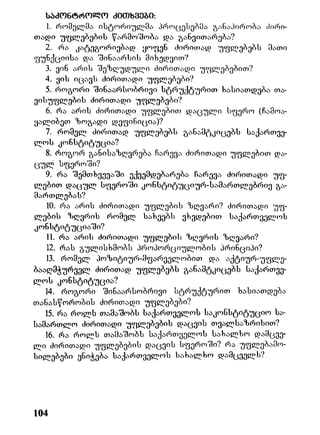 საკონტროლო კითხვები:
1. რომელმა ისტორიულმა პროცესებმა განაპირობა ძირი-
თადი უფლებების წარმოშობა და განვითარება?
2. რა კატეგორიებად ყოფენ ძირითად უფლებებს მათი
ფუნქციისა და შინაარსის მიხედვით?
3. ვინ არის შეზღუდული ძირითადი უფლებებით?
4. ვის იცავს ძირითადი უფლებები?
5. როგორი შინაარსობრივი სტრუქტურით ხასიათდება თა-
ვისუფლების ძირითადი უფლებები?
6. რა არის ძირითადი უფლებით დაცული სფერო (ჩამოა-
ყალიბეთ ზოგადი დეფინიცია)?
7. რომელ ძირითად უფლებებს განამტკიცებს საქართვე-
ლოს კონსტიტუცია?
8. როგორ განისაზღვრება ჩარევა ძირითადი უფლებით და-
ცულ სფეროში?
9. რა შემთხვევაში ექვემდებარება ჩარევა ძირითადი უფ-
ლებით დაცულ სფეროში კონსტიტუციურ-სამართლებრივ გა-
მართლებას?
10. რა არის ძირითადი უფლების ზღვარი? ძირითადი უფ-
ლების ზღვრის რომელ სახეებს ვხვდებით საქართველოს
კონსტიტუციაში?
11. რა არის ძირითადი უფლების ზღვრის ზღვარი?
12. რას გულისხმობს პროპორციულობის პრინციპი?
13. რომელ პოზიტიურ-მფარველობით და აქტიურ-უფლე-
ბააღმჭურველ ძირითად უფლებებს განამტკიცებს საქართვე-
ლოს კონსტიტუცია?
14. როგორი შინაარსობრივი სტრუქტურით ხასიათდება
თანასწორობის ძირითადი უფლებები?
15. რა როლს თამაშობს საქართველოს საკონსტიტუციო სა-
სამართლო ძირითადი უფლებების დაცვის თვალსაზრისით?
16. რა როლს თამაშობს საქართველოს სახალხო დამცვე-
ლი ძირითადი უფლებების დაცვის სფეროში? რა უფლებამო-
სილებები ენიჭება საქართველოს სახალხო დამცველს?
104